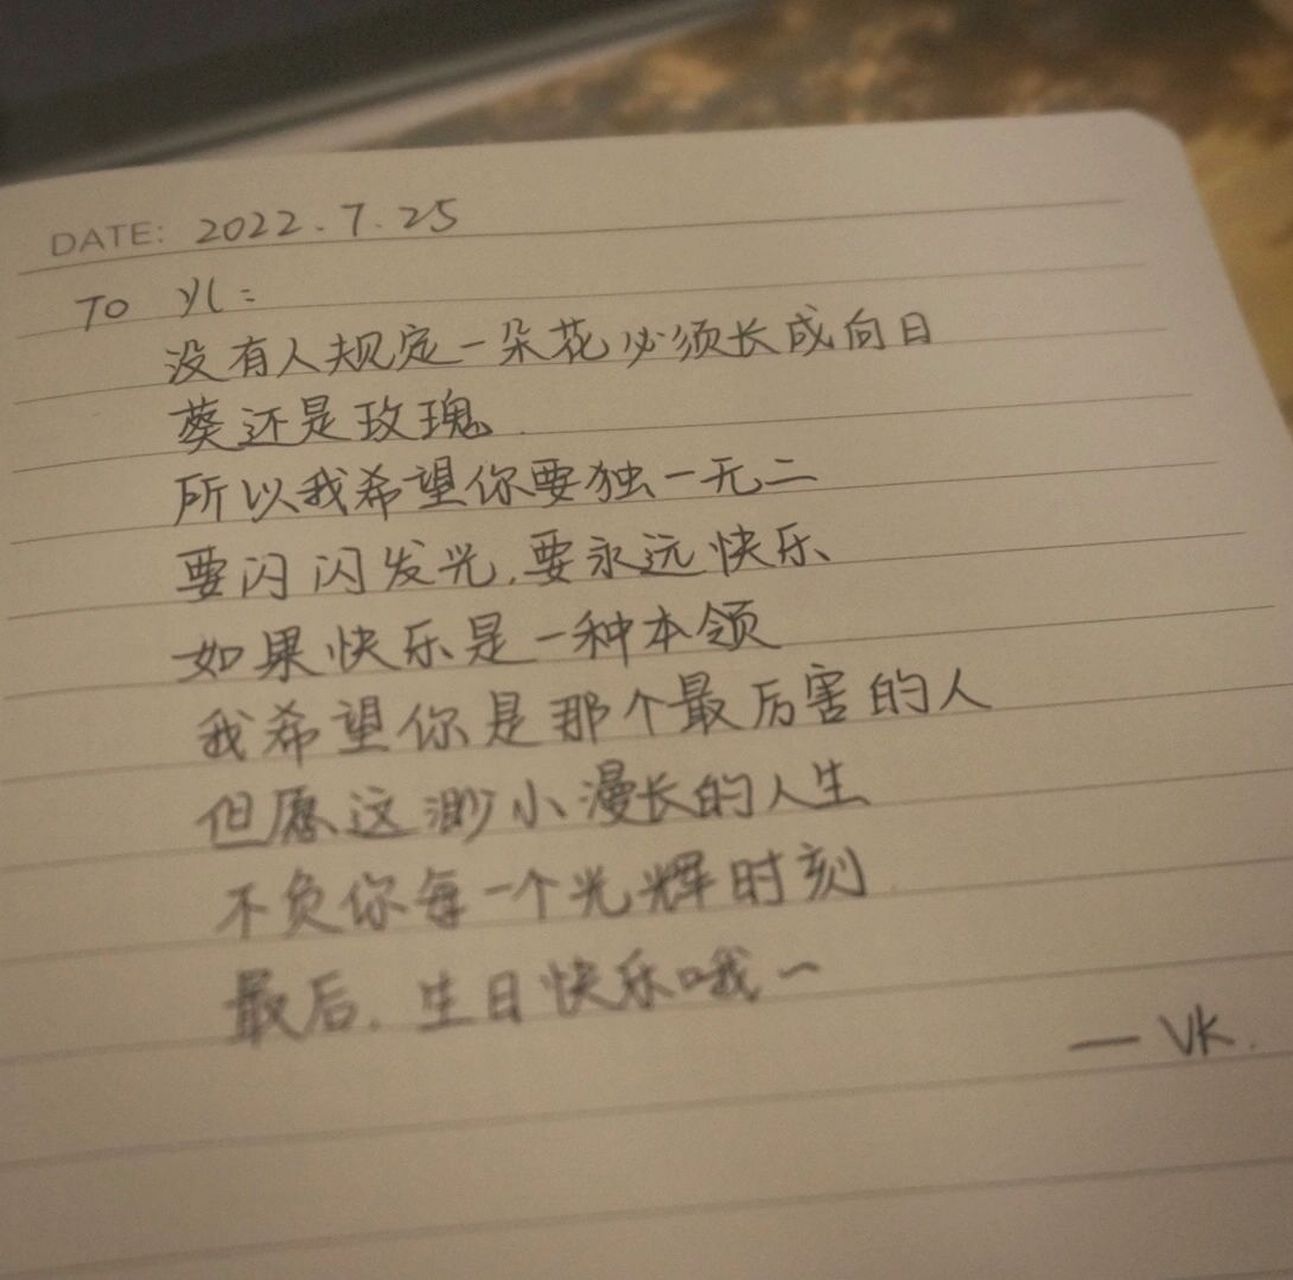 DATE: 2022.7.25
TO
没有人规定一朵花必须长成向日
葵还是玫瑰.
所以我希望你要独一无二
要闪闪发光,要永远快乐、
如果快乐是一种本领
我希望你是那个最厉害的人
但愿这渺小漫长的人生
不负你每一个光辉时刻
最后.生日快乐哦～
— VK.